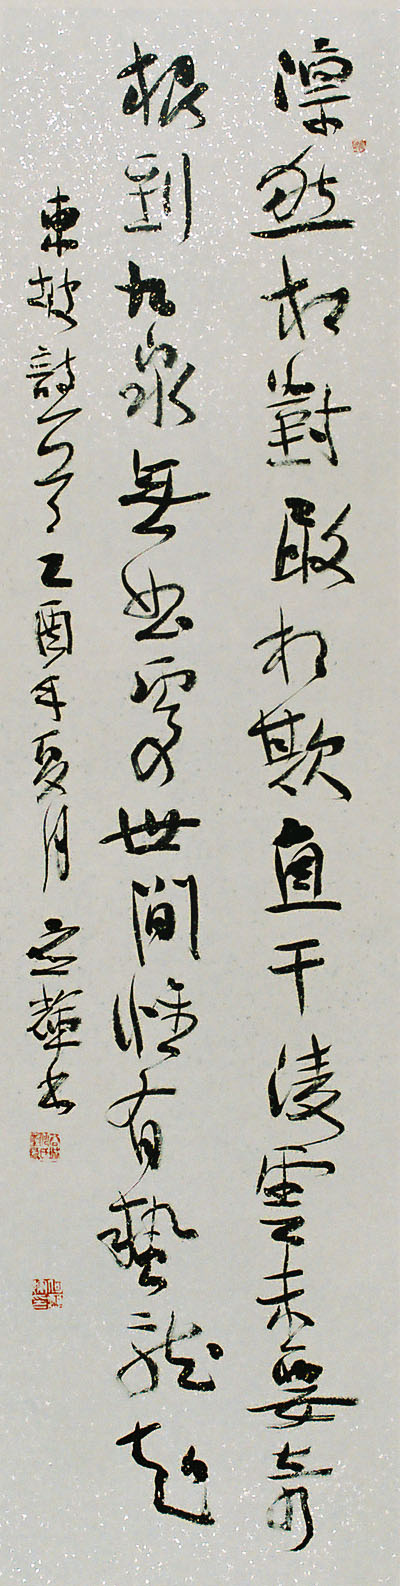 凜然相對敢相欺直干淩雲未要奇
根到九泉無曲處世間惟有蟄龍知
東坡詩一首乙酉年夏月輝書